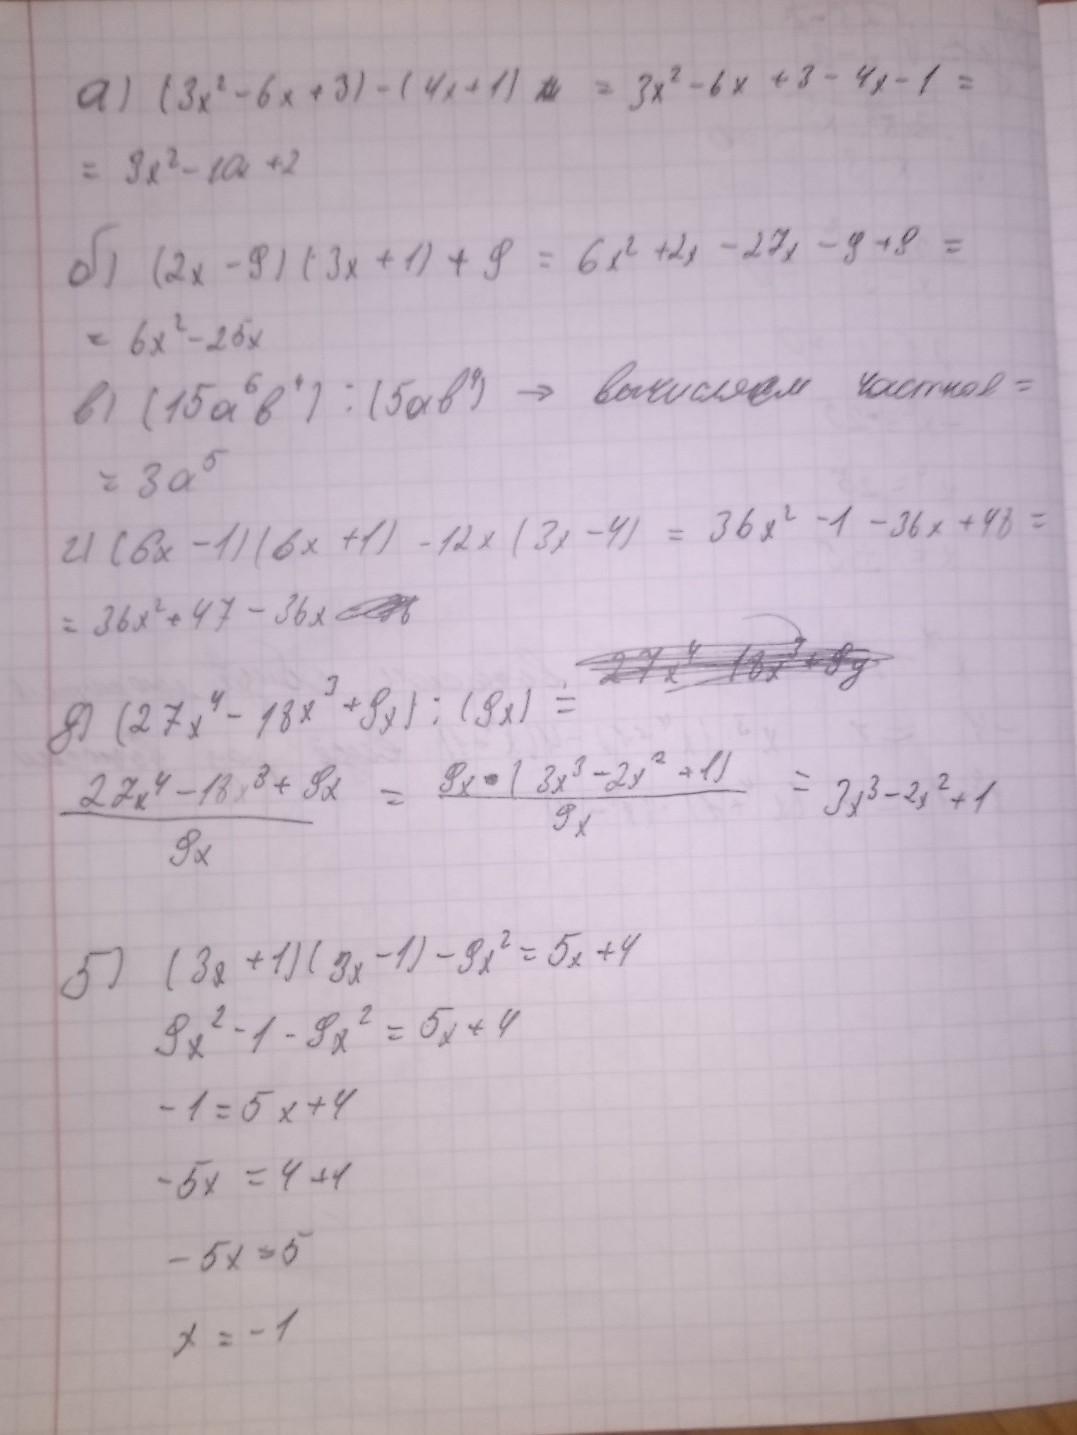 а) (3x² - 6x + 3) - (4x + 1) = 3x² - 6x + 3 - 4x - 1 =
= 3x² - 10x + 2
б) (2x - 9) (3x + 1) + 9 = 6x² + 2x - 27x - 9 + 9 =
= 6x² - 25x
в) (15a⁶b⁴) : (5ab⁴) → вычисляем частное =
= 3a⁵
г) (6x - 1)(6x + 1) - 12x (3x - 4) = 36x² - 1 - 36x + 48 =
= 36x² + 47 - 36x
д) (27x⁴ - 18x³ + 9x) : (9x) =
27x⁴ - 18x³ + 9x / 9x = 9x · (3x³ - 2x² + 1) / 9x = 3x³ - 2x² + 1
5) (3x + 1)(3x - 1) - 9x² = 5x + 4
9x² - 1 - 9x² = 5x + 4
-1 = 5x + 4
-5x = 4 + 1
-5x = 5
x = -1